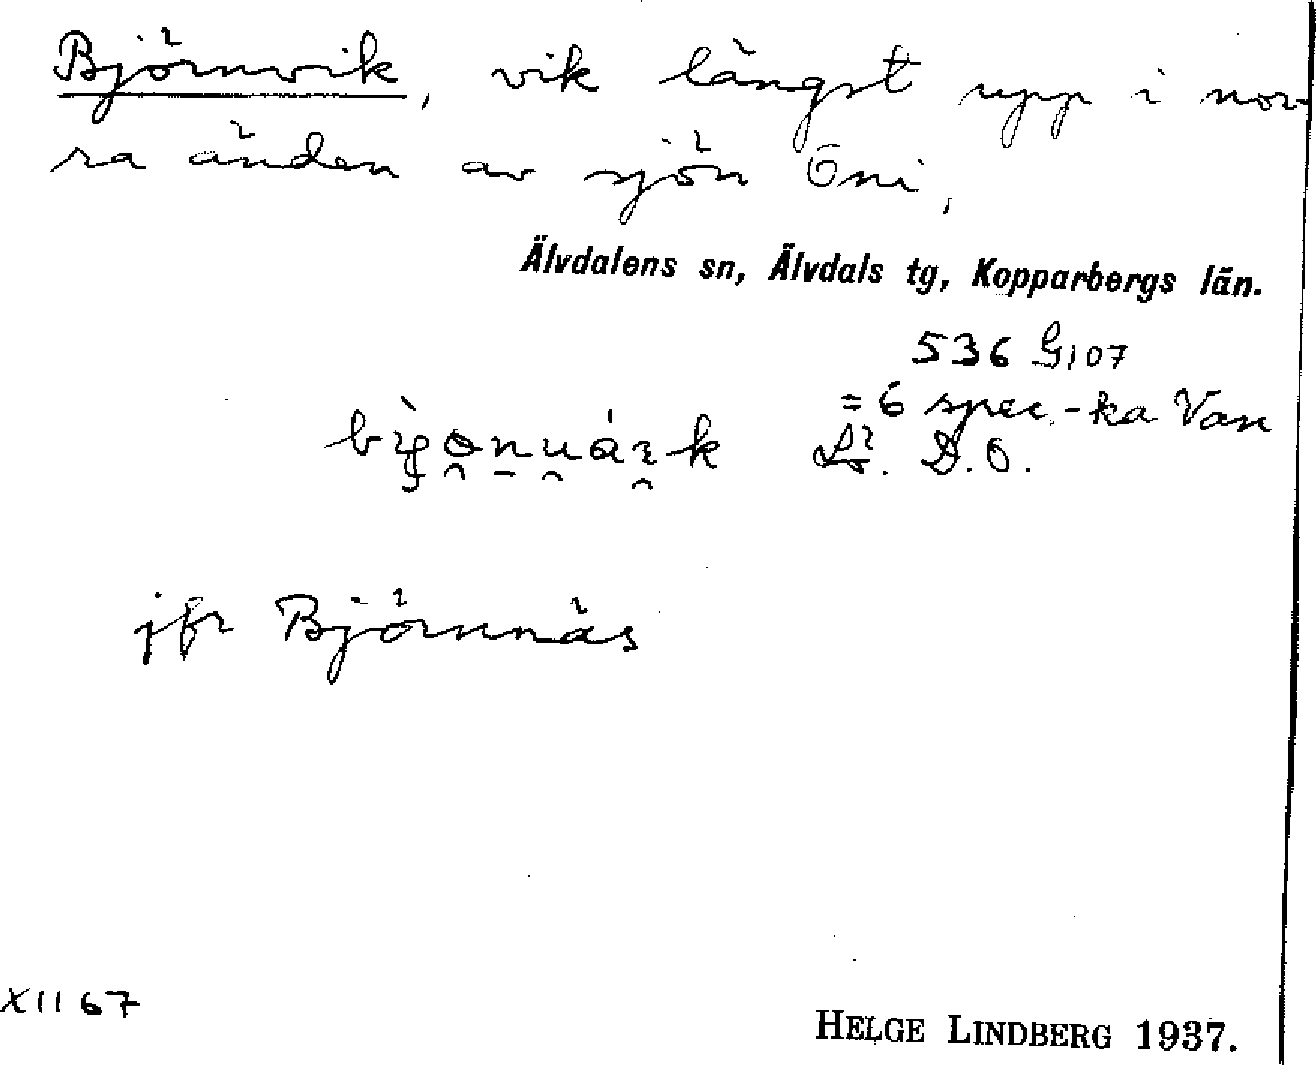 Björnvik, vik längst upp i nor-
ra änden av sjön Öni,
Älvdalens sn, Älvdals tg, Kopparbergs län.
536 G107
= 6 spec.-ka Van
D.O.
jfr Björnnäs
XII 67
HELGE LINDBERG 1937.